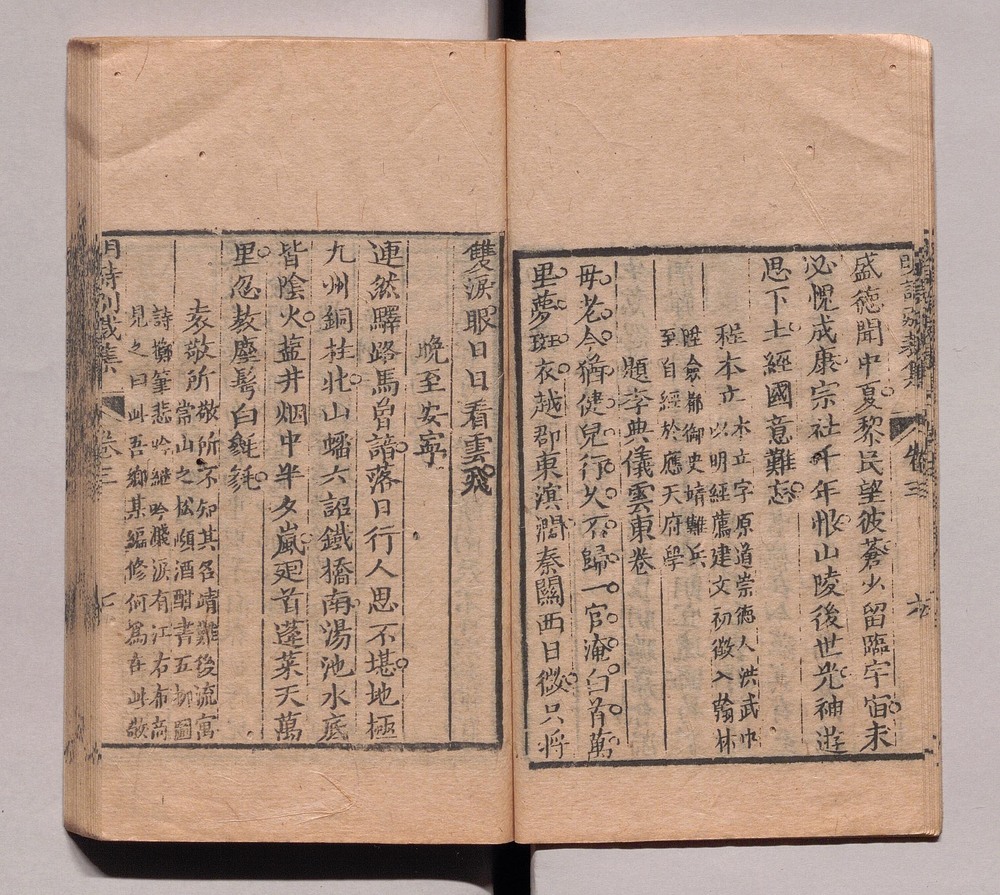 明詩別裁集 卷三 六
盛德聞中夏黎民望彼蒼少留臨宇宙未
必愧成康宗社千年恨山陵後世光神遊
思下士經國意難忘
程本立 本立字原道崇德人洪武中
以明經薦建文初徵入翰林
陞僉都御史靖難兵
至自經於應天府學
題李典儀雲東卷
母老今猶健兒行久不歸一官淹白首萬
里夢斑衣越郡東溟濶秦關西日微只將
雙淚眼日日看雲飛
晚至安寧
連然驛路馬曾諳落日行人思不堪地極
九州銅柱北山蟠六詔鐵橋南湯池水底
皆陰火鹽井烟中半夕嵐廻首蓬萊天萬
里忍教塵鬂白毿毿
袁敬所 敬所不知其名靖難後流寓
常山之松嶺酒酣書五柳圖
詩擲筆悲吟繼吟淚有江右布商
見之曰此吾鄉某編修何爲在此敬
明詩別裁集 卷三 七